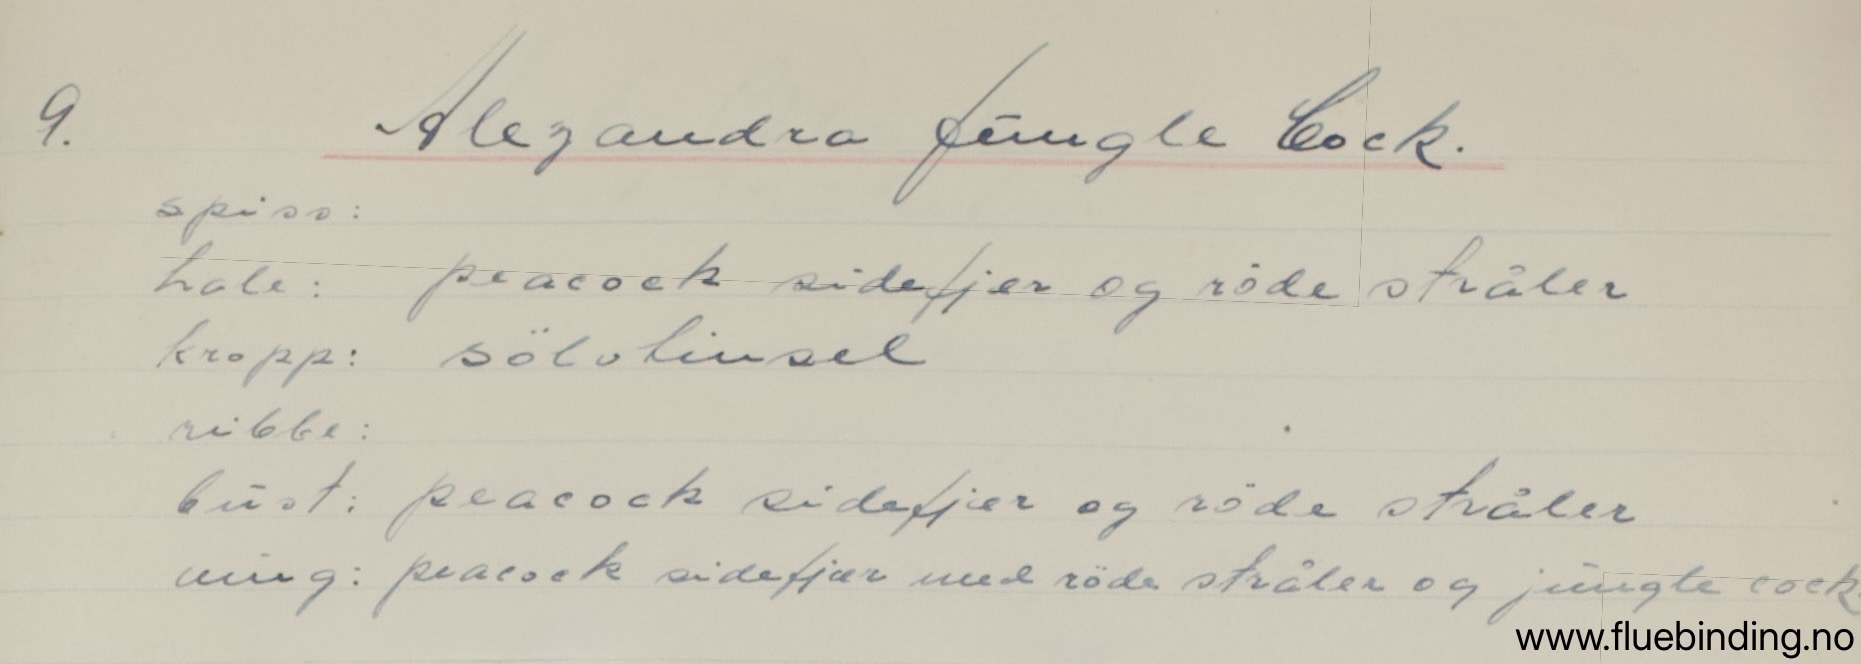 9. Alexandra Jungle Cock.
spiss:
hale: peacock sidefjær og röde stråler
kropp: sölvtinsel
ribbe:
büst: peacock sidefjær og röde stråler
ving: peacock sidefjær med röde stråler og jüngle cock
www.fluebinding.no